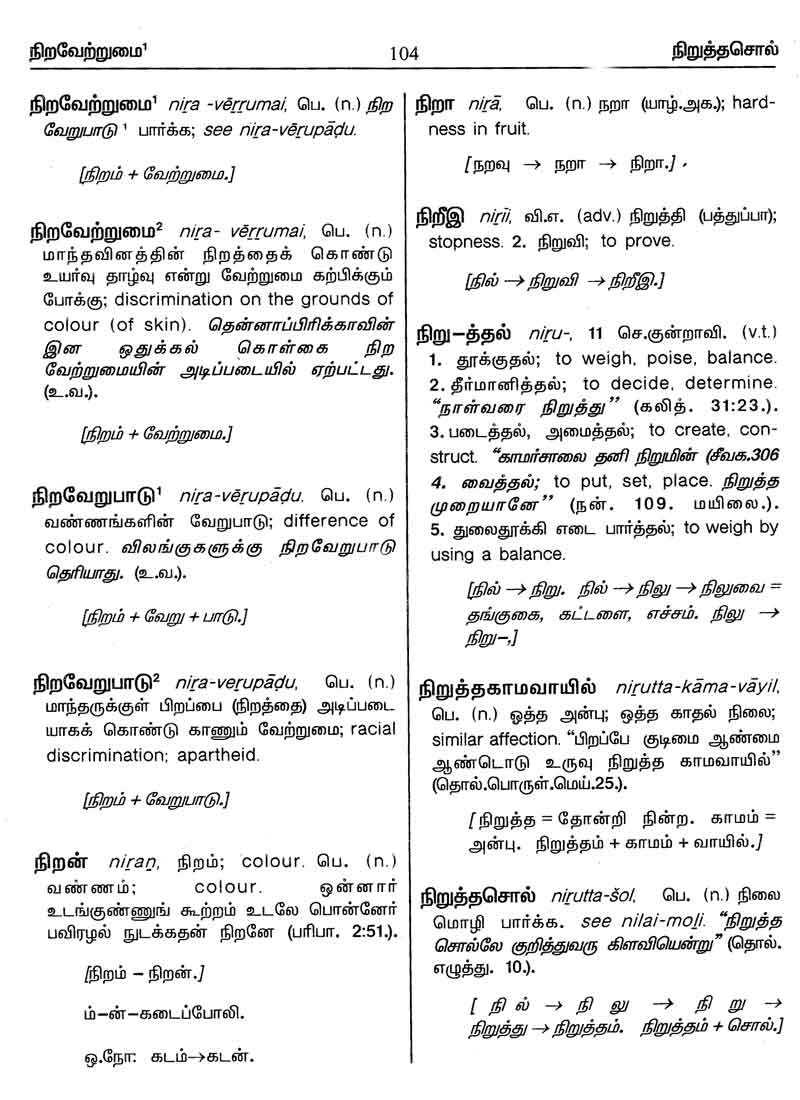 நிறவேற்றுமை¹ 104 நிறுத்தசொல்
நிறவேற்றுமை¹ niṟa -vēṟṟumai, பெ. (n.) நிற
வேறுபாடு ¹ பார்க்க; see niṟa-vēṟupāḍu.
[நிறம் + வேற்றுமை.]
நிறவேற்றுமை² niṟa- vēṟṟumai, பெ. (n.)
மாந்தவினத்தின் நிறத்தைக் கொண்டு
உயர்வு தாழ்வு என்று வேற்றுமை கற்பிக்கும்
போக்கு; discrimination on the grounds of
colour (of skin). தென்னாப்பிரிக்காவின்
இன ஒதுக்கல் கொள்கை நிற
வேற்றுமையின் அடிப்படையில் ஏற்பட்டது.
(உ.வ.).
[நிறம் + வேற்றுமை.]
நிறவேறுபாடு¹ niṟa-vēṟupāḍu, பெ. (n.)
வண்ணங்களின் வேறுபாடு; difference of
colour. விலங்குகளுக்கு நிறவேறுபாடு
தெரியாது. (உ.வ.).
[நிறம் + வேறு + பாடு.]
நிறவேறுபாடு² niṟa-veṟupāḍu, பெ. (n.)
மாந்தருக்குள் பிறப்பை (நிறத்தை) அடிப்படை
யாகக் கொண்டு காணும் வேற்றுமை; racial
discrimination; apartheid.
[நிறம் + வேறுபாடு.]
நிறன் niṟaṉ, நிறம்; colour. பெ. (n.)
வண்ணம்; colour. ஒன்னார்
உடங்குண்ணுங் கூற்றம் உடலே பொன்னேர்
பவிரழல் நுடக்கதன் நிறனே (பரிபா. 2:51.).
[நிறம் – நிறன்.]
ம்–ன்–கடைப்போலி.
ஒ.நோ: கடம்→கடன்.
நிறா niṟā, பெ. (n.) நறா (யாழ்.அக.); hard-
ness in fruit.
[நறவு → நறா → நிறா.]
நிறீஇ niṟīi, வி.எ. (adv.) நிறுத்தி (பத்துப்பா);
stopness. 2. நிறுவி; to prove.
[நில் → நிறுவி → நிறீஇ.]
நிறு–த்தல் niṟu-, 11 செ.குன்றாவி. (v.t.)
1. தூக்குதல்; to weigh, poise, balance.
2. தீர்மானித்தல்; to decide, determine.
“நாள்வரை நிறுத்து” (கலித். 31:23.).
3. படைத்தல், அமைத்தல்; to create, con-
struct. “காமர்சாலை தனி நிறுமின் (சீவக.306
4. வைத்தல்; to put, set, place. நிறுத்த
முறையானே” (நன். 109. மயிலை.).
5. துலைதூக்கி எடை பார்த்தல்; to weigh by
using a balance.
[நில் → நிறு. நில் → நிலு → நிலுவை =
தங்குகை, கட்டளை, எச்சம். நிலு →
நிறு–,]
நிறுத்தகாமவாயில் niṟutta-kāma-vāyil,
பெ. (n.) ஒத்த அன்பு; ஒத்த காதல் நிலை;
similar affection. “பிறப்பே குடிமை ஆண்மை
ஆண்டொடு உருவு நிறுத்த காமவாயில்”
(தொல்.பொருள்.மெய்.25.).
[ நிறுத்த = தோன்றி நின்ற. காமம் =
அன்பு. நிறுத்தம் + காமம் + வாயில்.]
நிறுத்தசொல் niṟutta-šol, பெ. (n.) நிலை
மொழி பார்க்க. see nilai-moḻi. “நிறுத்த
சொல்லே குறித்துவரு கிளவியென்று” (தொல்.
எழுத்து. 10.).
[ நில் → நிலு → நிறு →
நிறுத்து → நிறுத்தம். நிறுத்தம் + சொல்.]